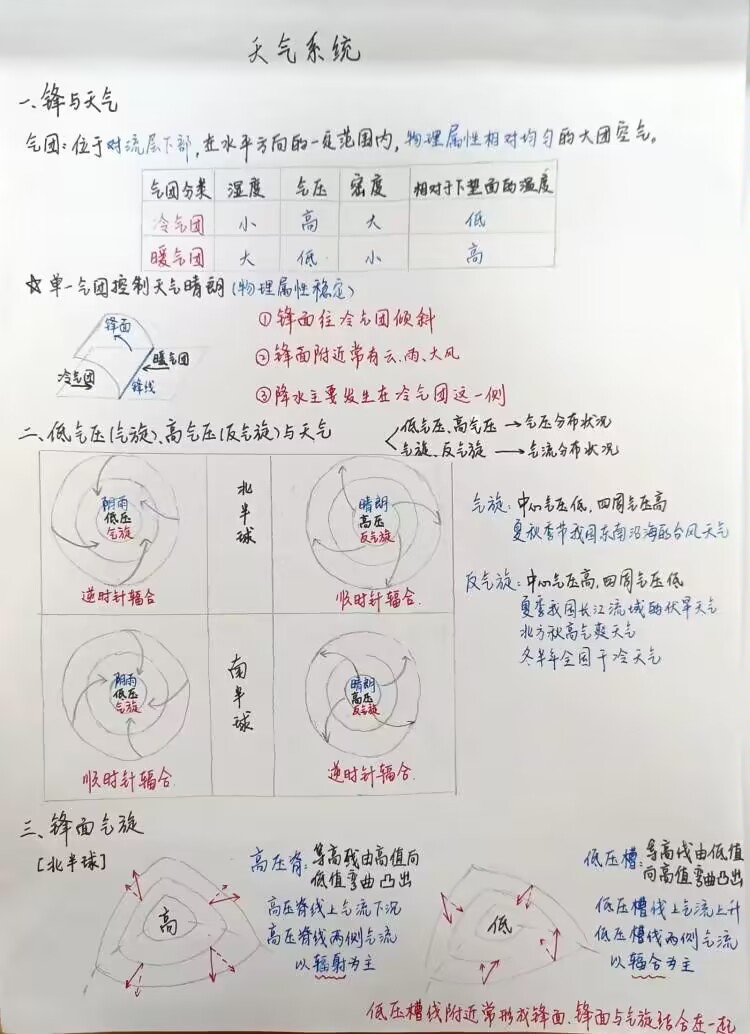 天气系统
一、锋与天气
气团：位于对流层下部，在水平方向的一定范围内，物理属性相对均匀的大团空气。
气团分类 湿度 气压 密度 相对于下垫面的温度
冷气团 小 高 大 低
暖气团 大 低 小 高
☆单一气团控制天气晴朗(物理属性稳定)
锋面
暖气团
冷气团
锋线
①锋面往冷气团倾斜
②锋面附近常有云、雨、大风
③降水主要发生在冷气团这一侧
二、低气压(气旋)、高气压(反气旋)与天气
低气压、高气压→气压分布状况
气旋、反气旋→气流分布状况
阴雨
低压
气旋
逆时针辐合
北半球
晴朗
高压
反气旋
顺时针辐合.
阴雨
低压
气旋
顺时针辐合.
南半球
晴朗
高压
反气旋
逆时针辐合.
气旋：中心气压低，四周气压高
夏秋季节我国东南沿海的台风天气
反气旋：中心气压高，四周气压低
夏季我国长江流域的伏旱天气
北方秋高气爽天气
冬半年全国干冷天气
三、锋面气旋
[北半球]
高
高压脊：等高线由高值向
低值弯曲凸出
高压脊线上气流下沉
高压脊线两侧气流
以辐射为主
低
低压槽：等高线由低值
向高值弯曲凸出
低压槽线上气流上升
低压槽线两侧气流
以辐合为主
低压槽线附近常形成锋面，锋面与气旋结合在一起